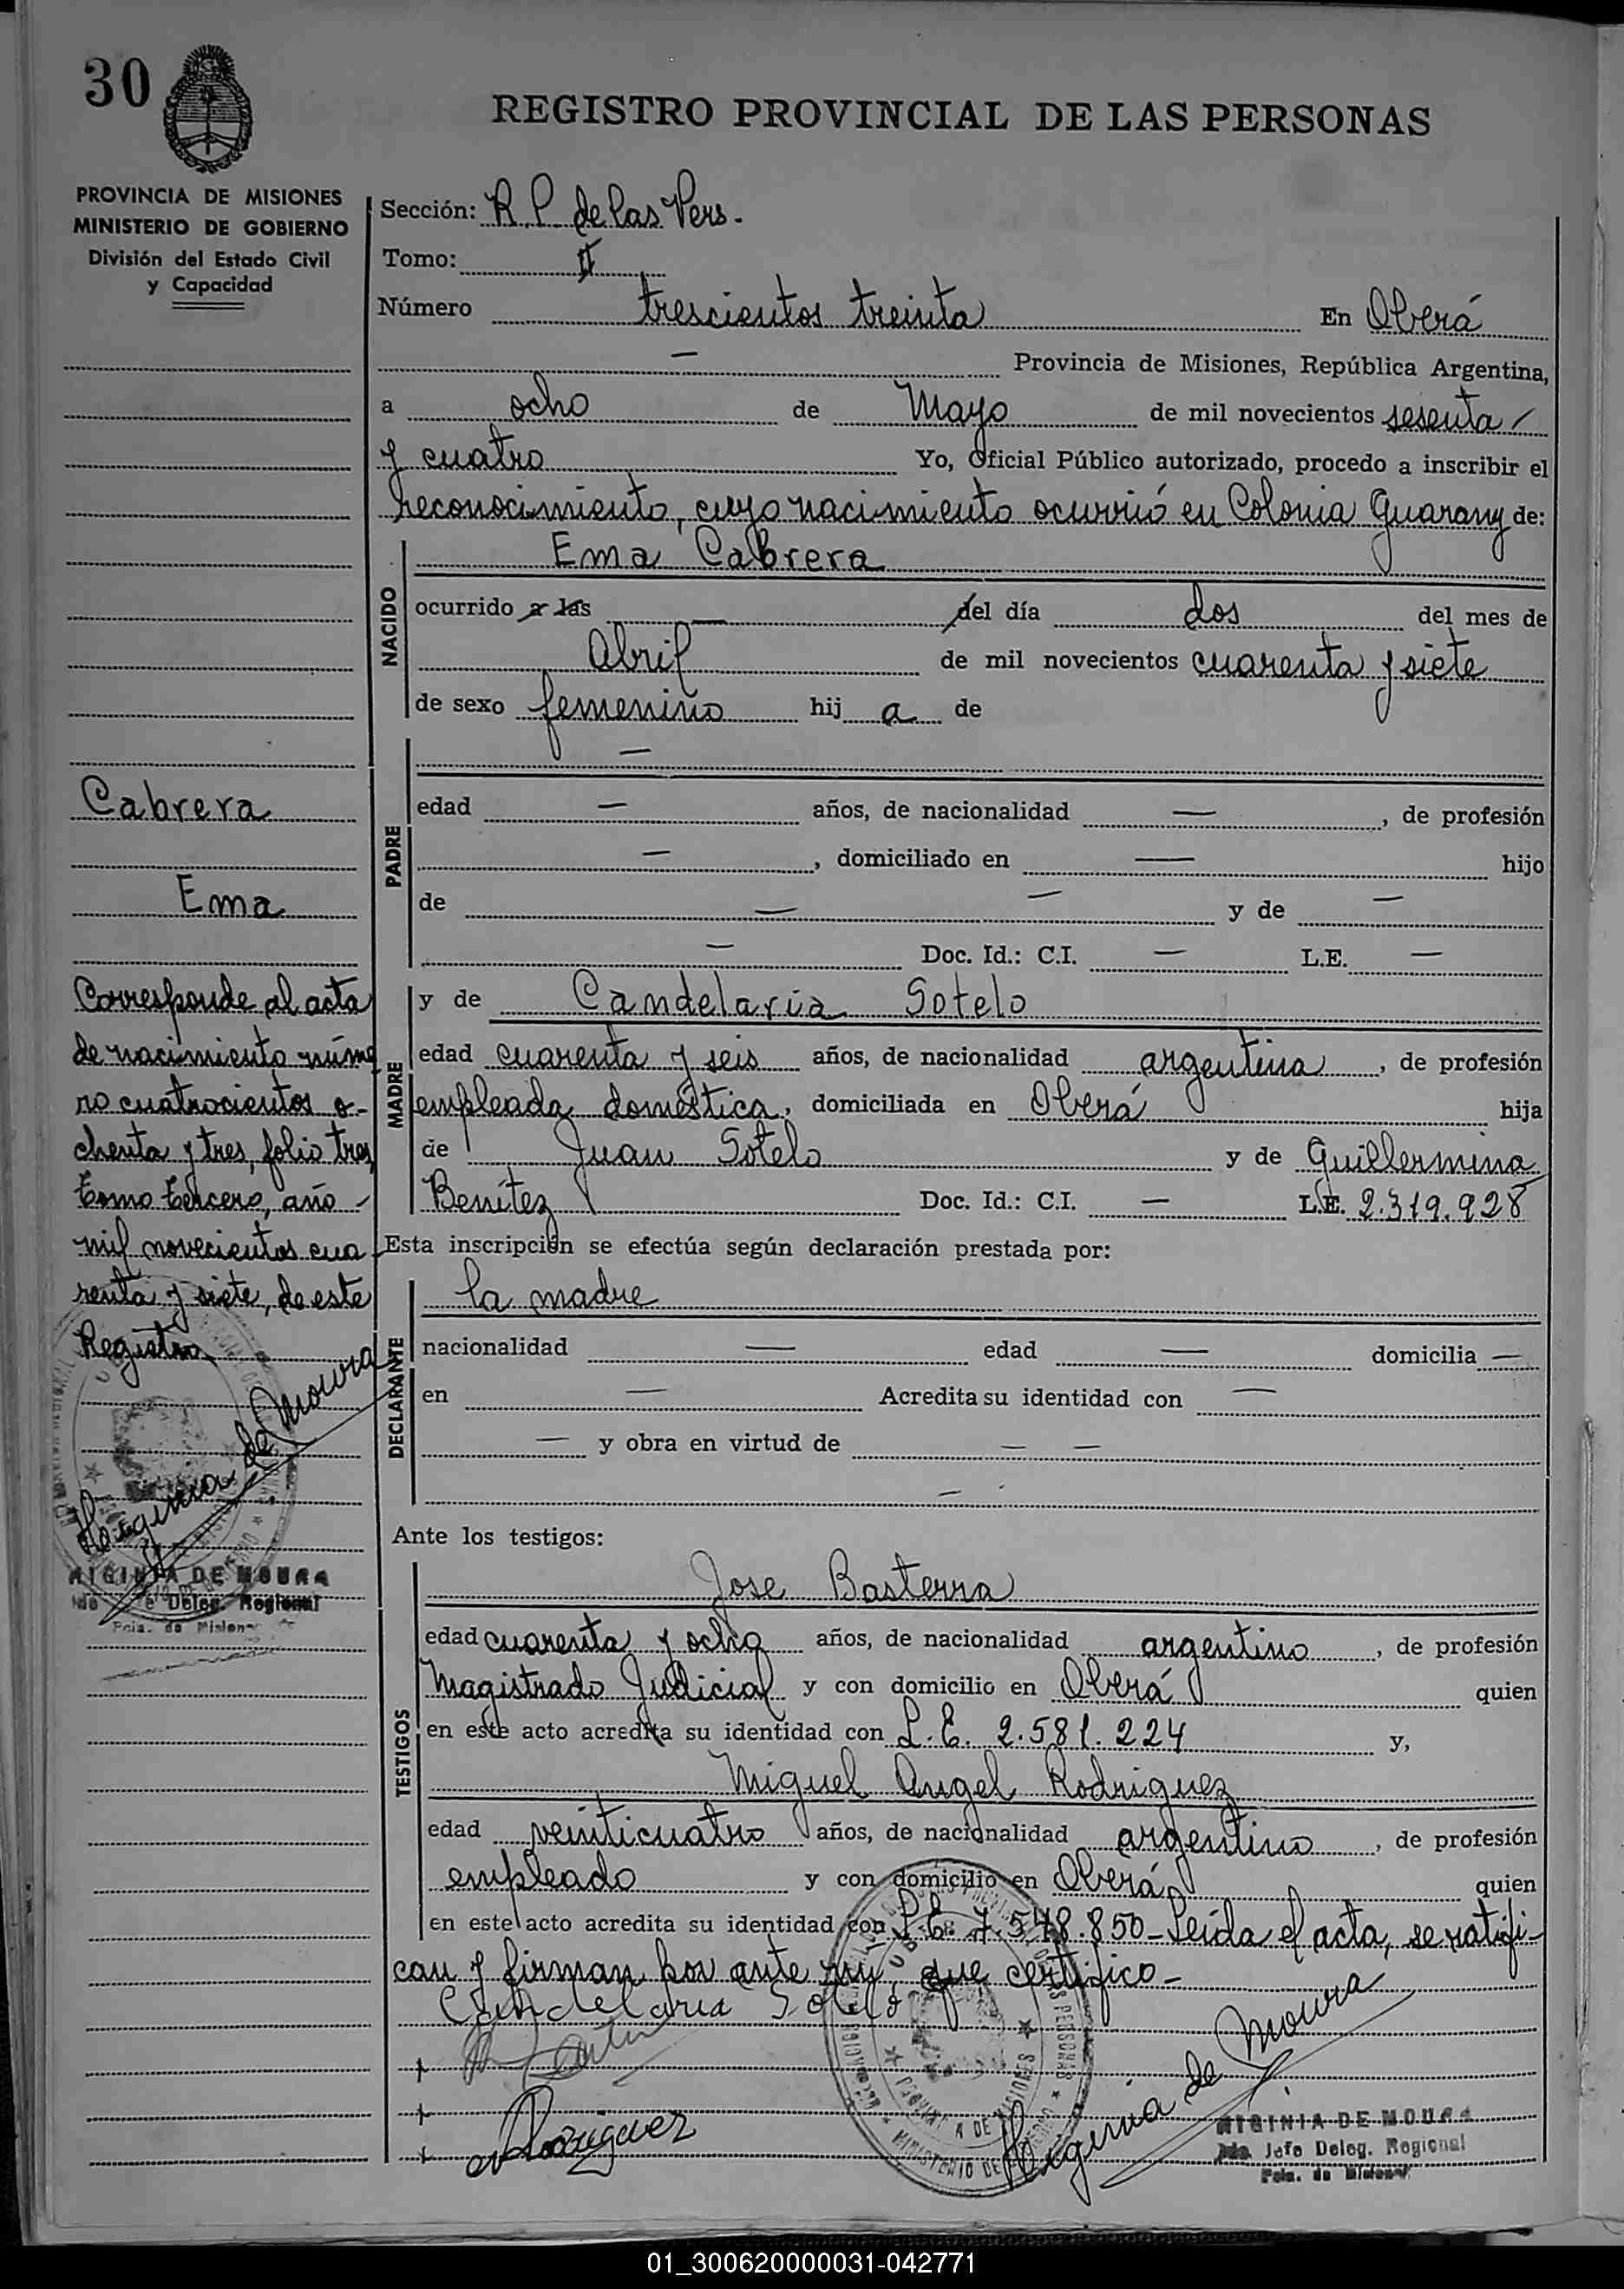 30
REGISTRO PROVINCIAL DE LAS PERSONAS
PROVINCIA DE MISIONES
MINISTERIO DE GOBIERNO
División del Estado Civil
y Capacidad
Sección: R. P. de las Pers.
Tomo: II
Número trescientos treinta En Oberá
— Provincia de Misiones, República Argentina,
a ocho de Mayo de mil novecientos sesenta
y cuatro Yo, Oficial Público autorizado, procedo a inscribir el
reconocimiento, cuyo nacimiento ocurrió en Colonia Guarany de:
NACIDO
Ema Cabrera
ocurrido a las — del día dos del mes de
Abril de mil novecientos cuarenta y siete
de sexo femenino hij a de
PADRE
—
edad — años, de nacionalidad —, de profesión
—, domiciliado en — hijo
de — — y de —
— Doc. Id.: C.I. — L.E. —
MADRE
y de Candelaria Sotelo
edad cuarenta y seis años, de nacionalidad argentina, de profesión
empleada doméstica, domiciliada en Oberá hija
de Juan Sotelo y de Guillermina
Benítez Doc. Id.: C.I. — L.E. 2.319.928
Esta inscripción se efectúa según declaración prestada por:
DECLARANTE
la madre
nacionalidad — edad — domicilia —
en — Acredita su identidad con —
— y obra en virtud de — —
—
Ante los testigos:
TESTIGOS
Jose Basterra
edad cuarenta y ocho años, de nacionalidad argentino, de profesión
Magistrado Judicial y con domicilio en Oberá quien
en este acto acredita su identidad con L.E. 2.581.224 y,
Miguel Angel Rodriguez
edad veinticuatro años, de nacionalidad argentino, de profesión
empleado y con domicilio en Oberá quien
en este acto acredita su identidad con L.E. 7.548.850 - Leída el acta, se ratifi-
can y firman por ante mí, que certifico -
Candelaria Sotelo
Rodriguez
Higinia de Moura
HIGINIA DE MOURA
Jefe Deleg. Regional
Pcia. de Misiones
Cabrera
Ema
Corresponde al acta
de nacimiento núme
ro cuatrocientos o-
chenta y tres, folio tres,
tomo tercero, año -
mil novecientos cua
renta y siete, de este
Registro
Higinia de Moura
HIGINIA DE MOURA
Deleg. Regional
Pcia. de Misiones
01_300620000031-042771